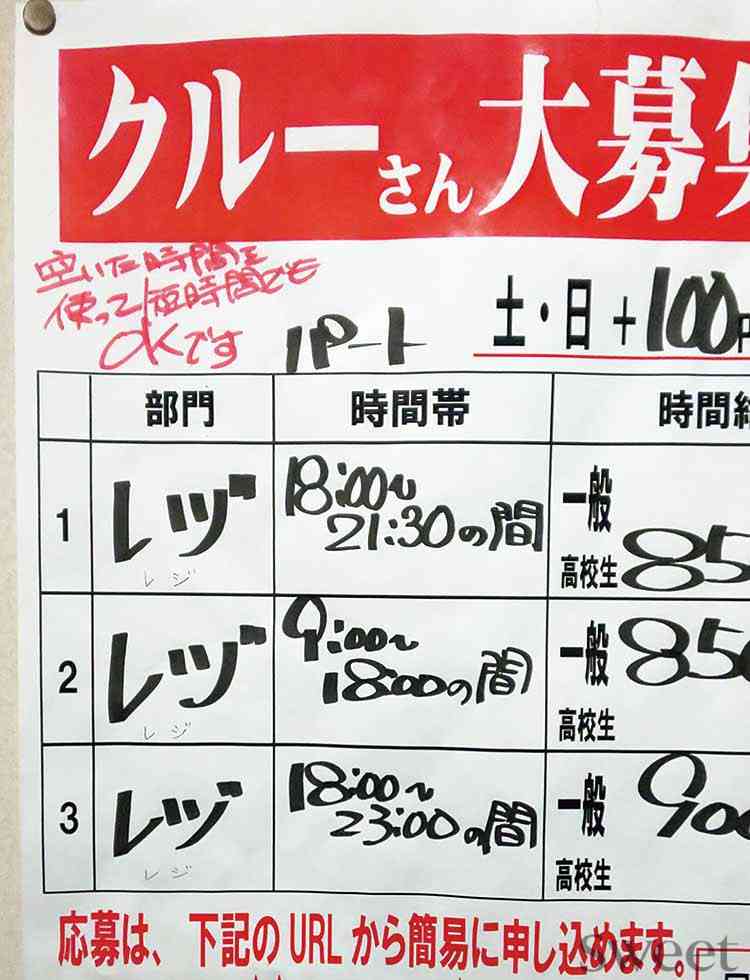 クルーさん大募集
空いた時間を
使って短時間でも
OKです
パート
土・日+100円
部門 時間帯 時間給
1 レヅ レジ 18:00~21:30の間 一般 高校生 85
2 レヅ レジ 9:00~18:00の間 一般 850 高校生
3 レヅ レジ 18:00~23:00の間 一般 900 高校生
応募は、下記のURLから簡易に申し込めます。
Sweet